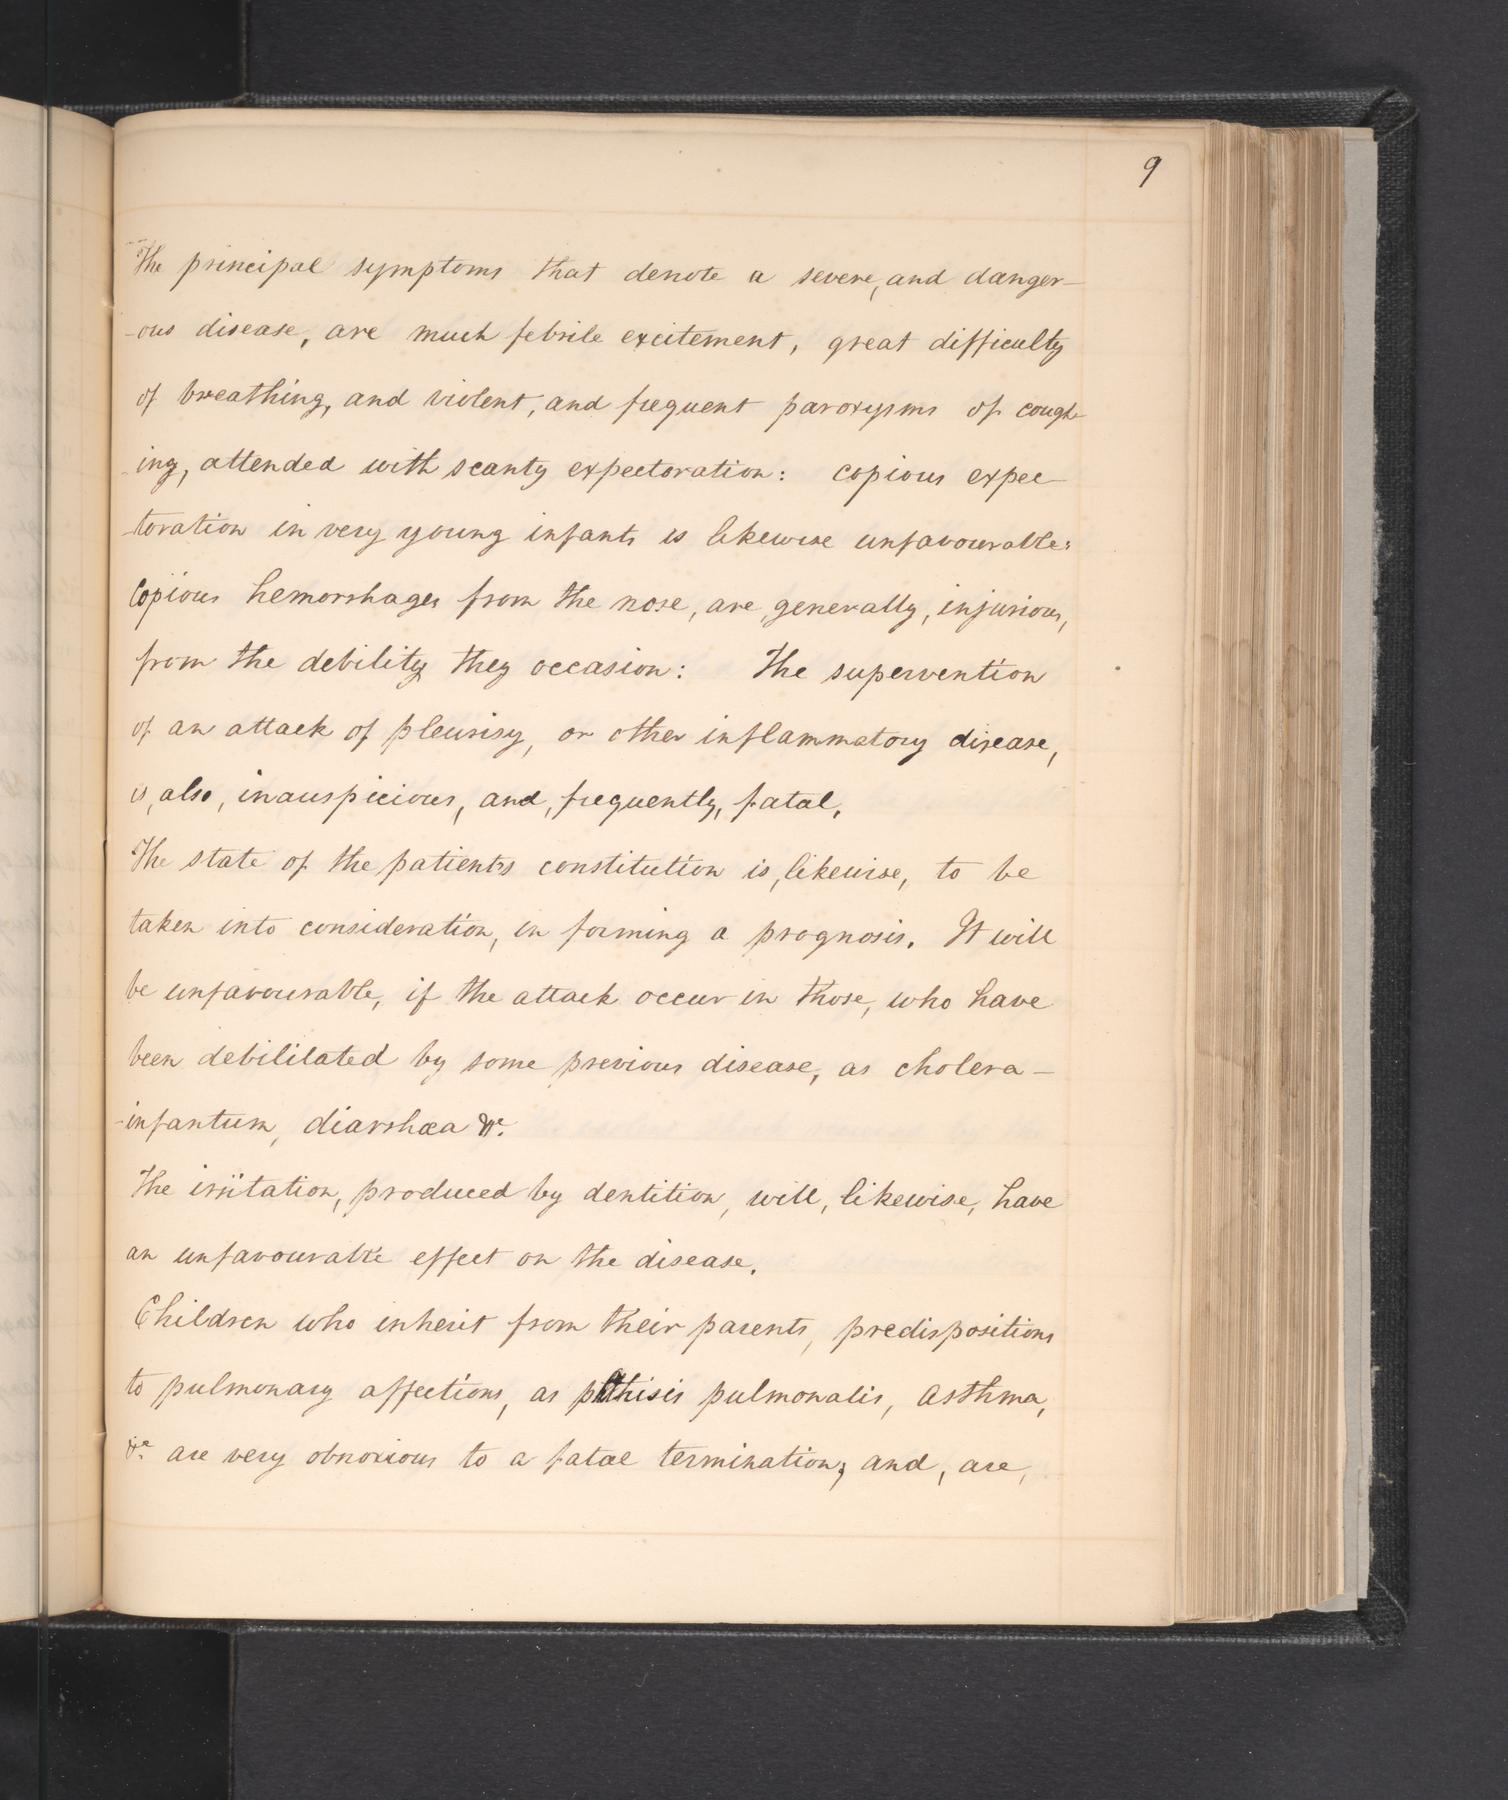 9
The principal symptoms that denote a severe, and danger-
-ous disease, are much febrile excitement, great difficulty
of breathing, and violent, and frequent paroxysms of cough-
-ing, attended with scanty expectoration: copious expec-
-toration in very young infants is likewise unfavourable:
Copious hemorrhages from the nose, are, generally, injurious,
from the debility they occasion: The supervention
of an attack of pleurisy, or other inflammatory disease,
is, also, inauspicious, and, frequently, fatal.
The state of the patients constitution is, likewise, to be
taken into consideration, in forming a prognosis. It will
be unfavourable, if the attack occur in those, who have
been debilitated by some previous disease, as cholera-
-infantum, diarrhœa &c.
The irritation, produced by dentition, will, likewise, have
an unfavourable effect on the disease.
Children who inherit from their parents, predispositions
to pulmonary affections, as phthisis pulmonalis, asthma,
&c. are very obnoxious to a fatal termination; and, are,